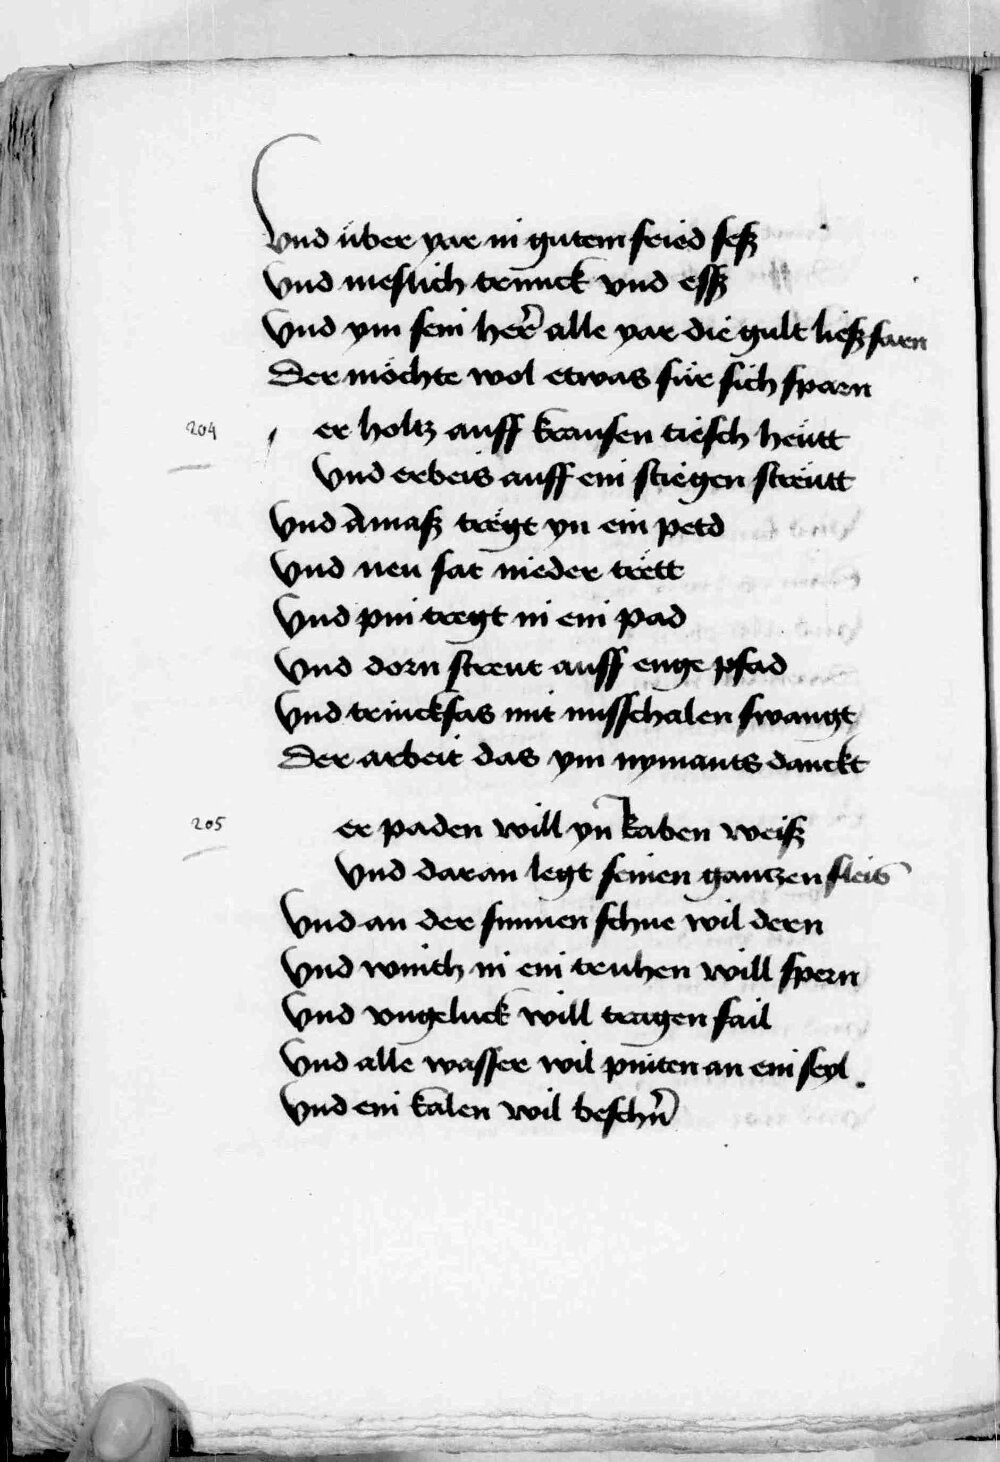 Vnd über yar in gutem fried seß
Vnd meslich trunck vnd esß
Vnd ym sein her̃ alle yar die gult ließ farn
Der möchte wol etwas für sich sparn
204 er holtz auff krausen tiesch heütt
Vnd erbeis auff ein stiegen streütt
Vnd amaß tregt yn ein petd
Vnd neu sat nieder trett
Vnd pin tregt in ein pad
Vnd dorn streut auff enge pfad
Vnd trinckfas mit nusschalen swangt
Der arbeit das ym nymants danckt
205 er paden will yn̄ raben weiß
Vnd daran legt seinen gantzen fleis
Vnd an der sunnen schne wil dern
Vnd winth in ein truhen will spern
Vnd vngeluck will tragen fail
Vnd alle wasser wil pinten an ein seyl
Vnd ein kalen wil beschñ